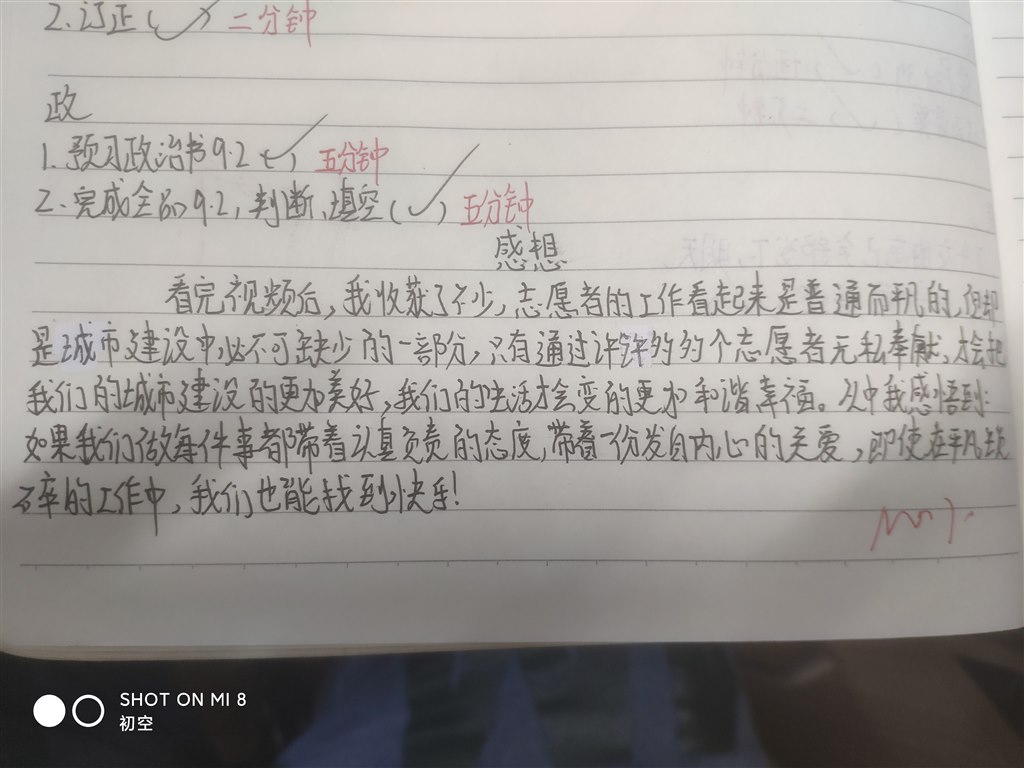 2.订正(✓) 二分钟
政
1.预习政治书9.2(✓) 五分钟
2.完成全品9.2,判断、填空(✓) 五分钟
感想
看完视频后,我收获了不少,志愿者的工作看起来是普通而平凡的,但却
是城市建设中必不可缺少的一部分,只有通过许许多多的个志愿者无私奉献,才会把
我们的城市建设的更加美好,我们的生活才会变的更加和谐幸福。从中我感悟到:
如果我们做每件事都带着认真负责的态度,带着一份发自内心的关爱,即使在平凡琐
碎的工作中,我们也能找到快乐!
SHOT ON MI 8
初空